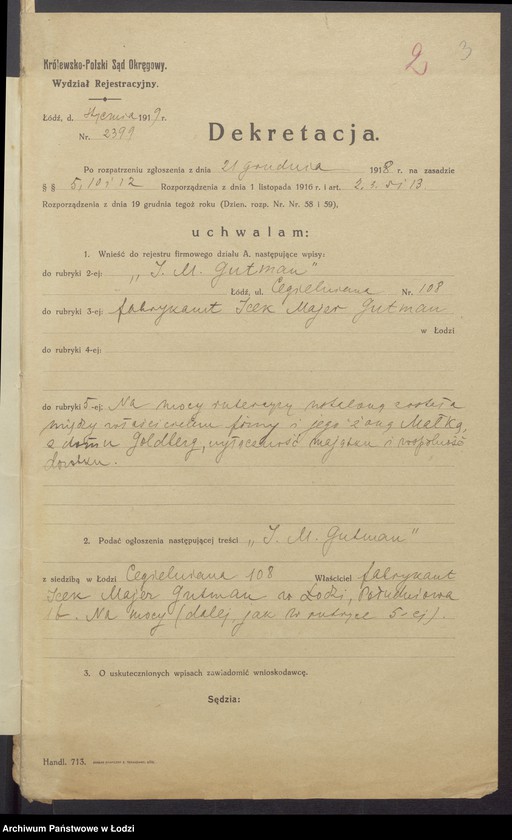 2 3
Królewsko-Polski Sąd Okręgowy.
Wydział Rejestracyjny.
Łódź, d. stycznia 1919 r.
Nr. 2399
Dekretacja.
Po rozpatrzeniu zgłoszenia z dnia 21 grudnia 1918 r. na zasadzie
§ § 5, 10 i 12 Rozporządzenia z dnia 1 listopada 1916 r. i art. 2. 3. 5 i 13
Rozporządzenia z dnia 19 grudnia tegoż roku (Dzien. rozp. Nr. Nr. 58 i 59),
uchwalam:
1. Wnieść do rejestru firmowego działu A. następujące wpisy:
do rubryki 2-ej: „I. M. Gutman"
Łódź, ul. Cegielniana Nr. 108
do rubryki 3-ej: fabrykant Icek Majer Gutman
w Łodzi
do rubryki 4-ej:
do rubryki 5-ej: Na mocy intercyzy została
między właścicielem firmy i jego żoną Małką,
z domu Goldberg, wyłączność majątku i wspólność
dorobku.
2. Podać ogłoszenia następującej treści „I. M. Gutman"
z siedzibą w Łodzi Cegielniana 108 Właściciel fabrykant
Icek Majer Gutman w Łodzi, Południowa
Na mocy (dalej, jak w rubryce 5-ej).
3. O uskutecznionych wpisach zawiadomić wnioskodawcę.
Sędzia:
Handl. 713.
Archiwum Państwowe w Łodzi